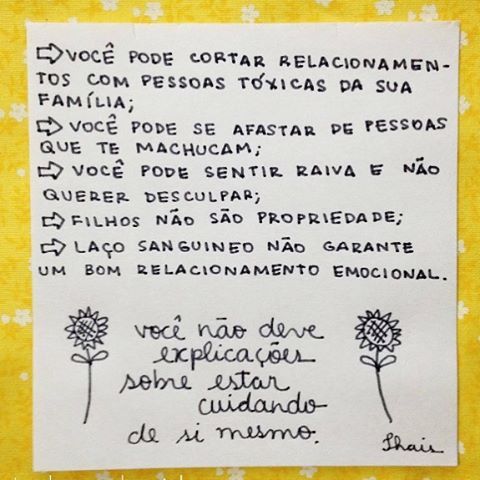 ⇨ VOCÊ PODE CORTAR RELACIONAMEN-
TOS COM PESSOAS TÓXICAS DA SUA
FAMÍLIA;
⇨ VOCÊ PODE SE AFASTAR DE PESSOAS
QUE TE MACHUCAM;
⇨ VOCÊ PODE SENTIR RAIVA E NÃO
QUERER DESCULPAR;
⇨ FILHOS NÃO SÃO PROPRIEDADE;
⇨ LAÇO SANGUINEO NÃO GARANTE
UM BOM RELACIONAMENTO EMOCIONAL.
você não deve
explicações
sobre estar
cuidando
de si mesmo.
Thais